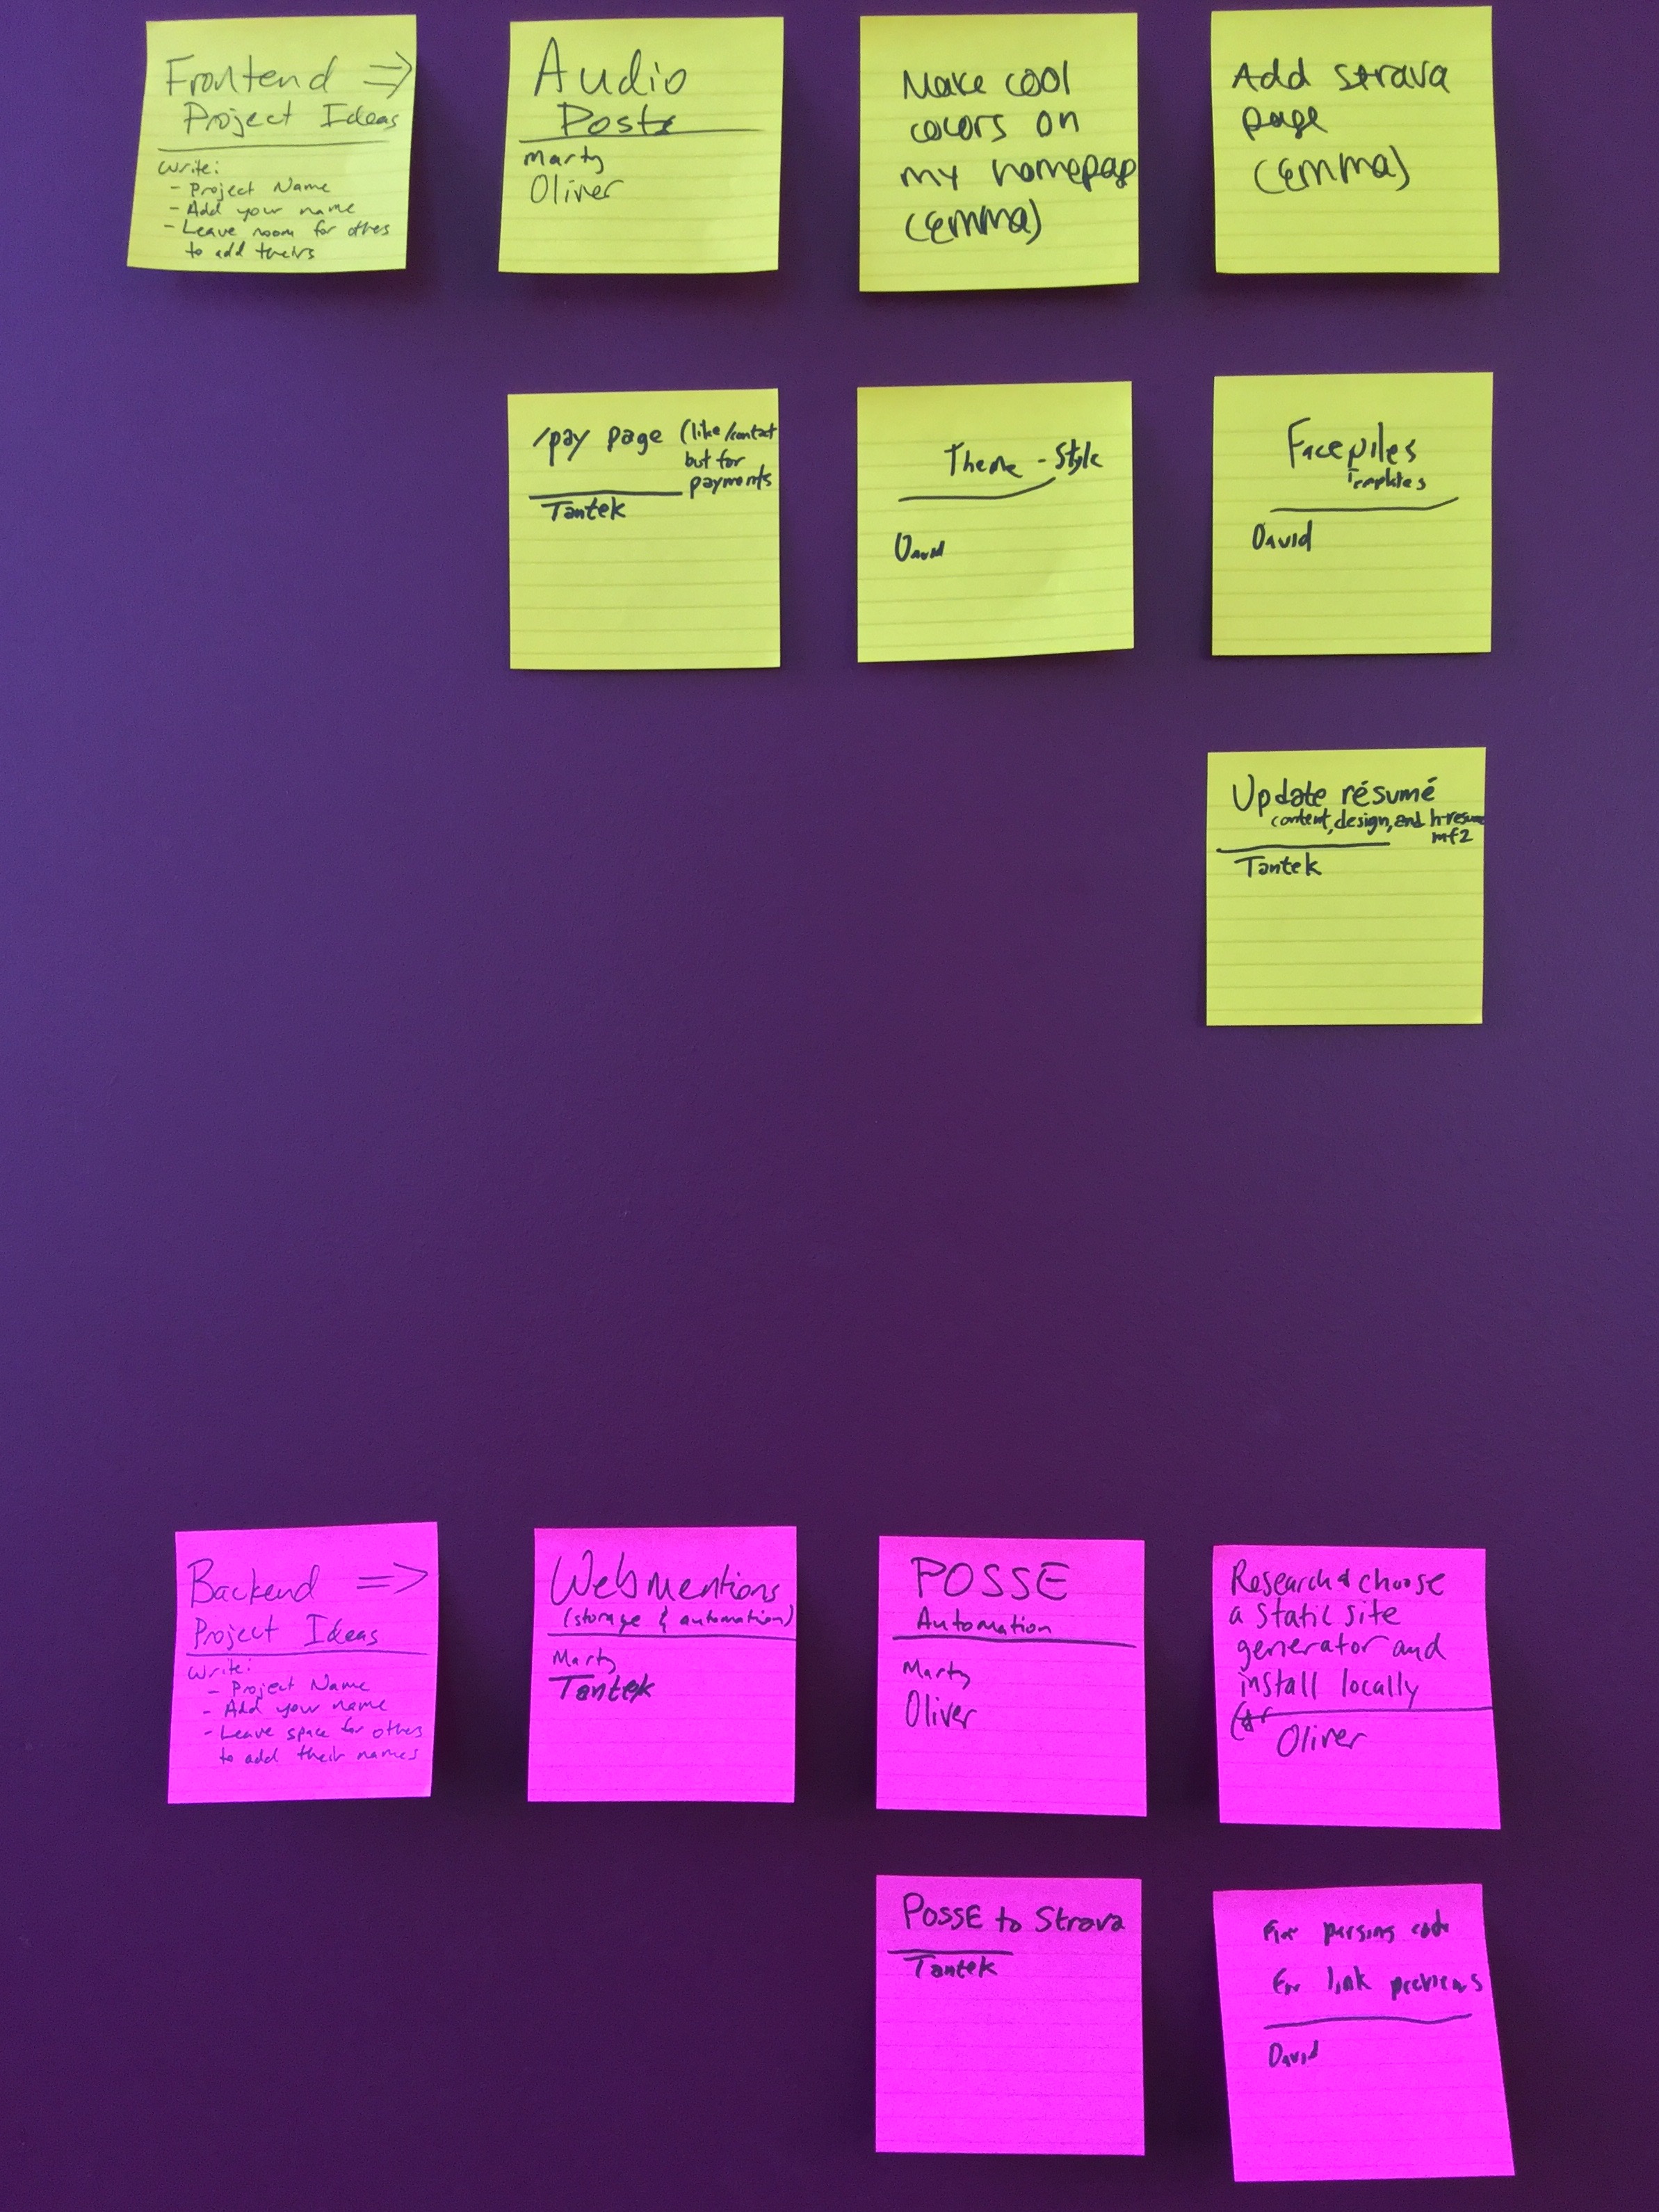 Frontend ⇒
Project Ideas
Write:
- Project Name
- Add your name
- Leave room for others
to add theirs
Audio
Posts
Marty
Oliver
Make cool
colors on
my homepage
(emma)
Add strava
page
(emma)
/pay page (like /contact
but for
payments
Tantek
Theme - Style
David
Facepiles
Templates
David
Update résumé
content, design, and h-resume
mf2
Tantek
Backend =>
Project Ideas
Write:
- Project Name
- Add your name
- Leave space for others
to add their names
Webmentions
(storage & automation)
Marty
Tantek
POSSE
Automation
Marty
Oliver
Research & choose
a static site
generator and
install locally
Oliver
POSSE to Strava
Tantek
Fix parsing code
link problems
David